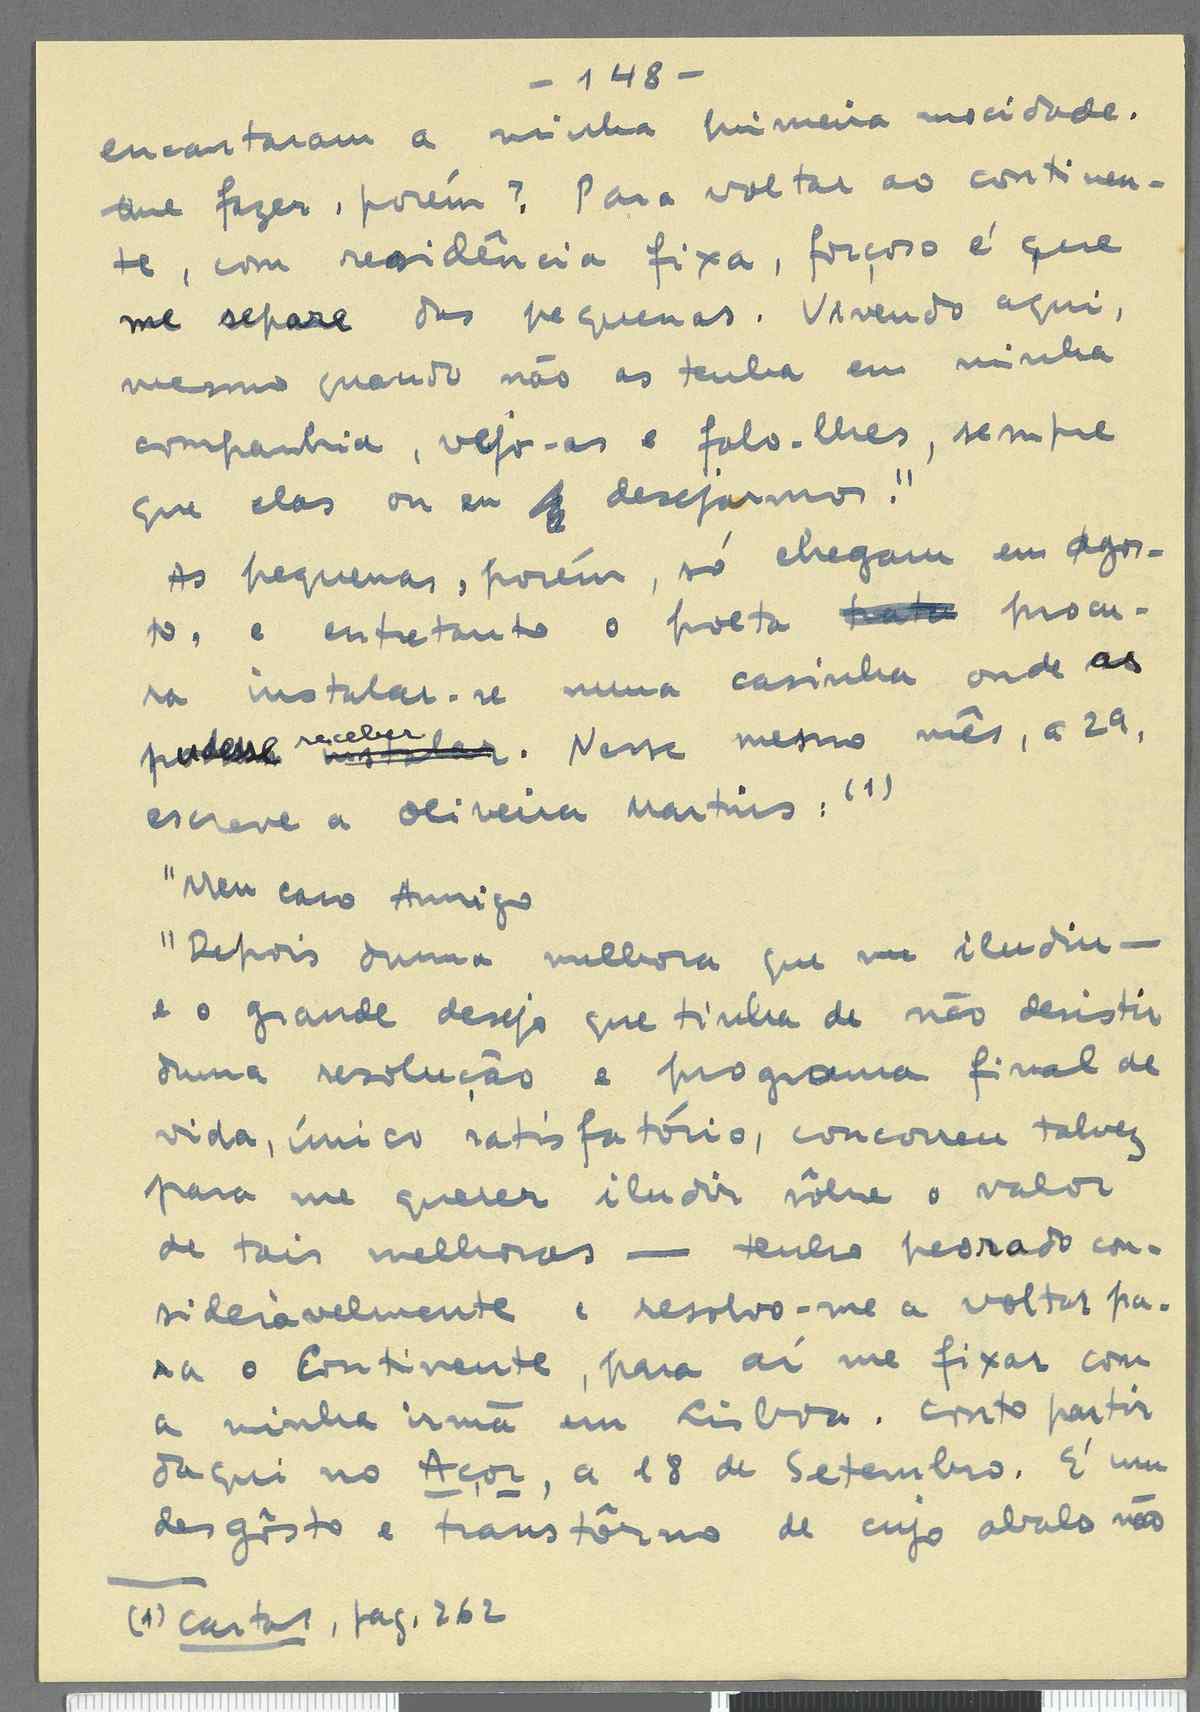 - 148 -
encantaram a minha primeira mocidade.
Que fazer, porém? Para voltar ao continen-
te, com residência fixa, forçoso é que
me separe das pequenas. Vivendo aqui,
mesmo quando não as tenha em minha
companhia, vejo-as e falo-lhes, sempre
que elas ou eu desejarmos."
As pequenas, porém, só chegam em Agos-
to, e entretanto o poeta trata procu-
ra instalar-se numa casinha onde as
pudesse receber instalar. Nesse mesmo mês, a 29,
escreve a Oliveira Martins: (1)
"Meu caro Amigo
"Depois duma melhora que me iludiu —
e o grande desejo que tinha de não desistir
duma resolução e programa final de
vida, único satisfatório, concorreu talvez
para me querer iludir sôbre o valor
de tais melhoras — tenho peorado con-
sideràvelmente e resolvo-me a voltar pa-
ra o Continente, para aí me fixar com
a minha irmã em Lisboa. Conto partir
daqui no Açor, a 18 de Setembro. É um
desgôsto e transtôrno de cujo abalo não
(1) Cartas, pag. 262